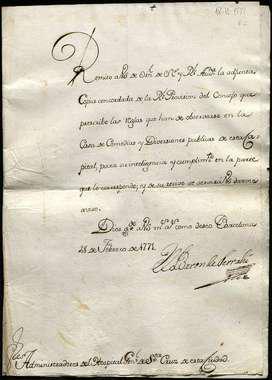 Remito a V.S. de Orn. de S.E. y Rl. Auda. la adjunta
Copia concordada de la Rl. Provision del Consejo que
prescribe las reglas que han de observarse en la
Casa de Comedias y Diversiones publicas de esta Ca-
pital, para su inteligencia y cumplimto. en la parte
que le corresponde, y de su recivo se servirá V.S. darme
aviso.
Dios gue. a V.S. ms. as. como deseo Barcelona
28 de Febrero de 1771.
Sres. Administradores del Hospital Genl. de Sta. Cruz de esta Ciudad.